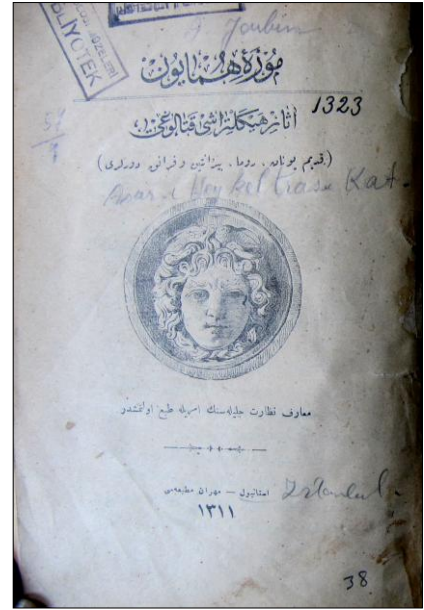 BLİYOTEK
Joubin
موزهٔ همایون
1323
آثار هیکلتراشی قتالوغی
(قدیم یونان، روما، بیزانتین و فرانق دورلری)
Asar-ı Heykeltraşı Kat.
معارف نظارت جلیله‌سنك امریله طبع اولنمشدر
استانبول — مهران مطبعه‌سی
İstanbul
١٣١١
38